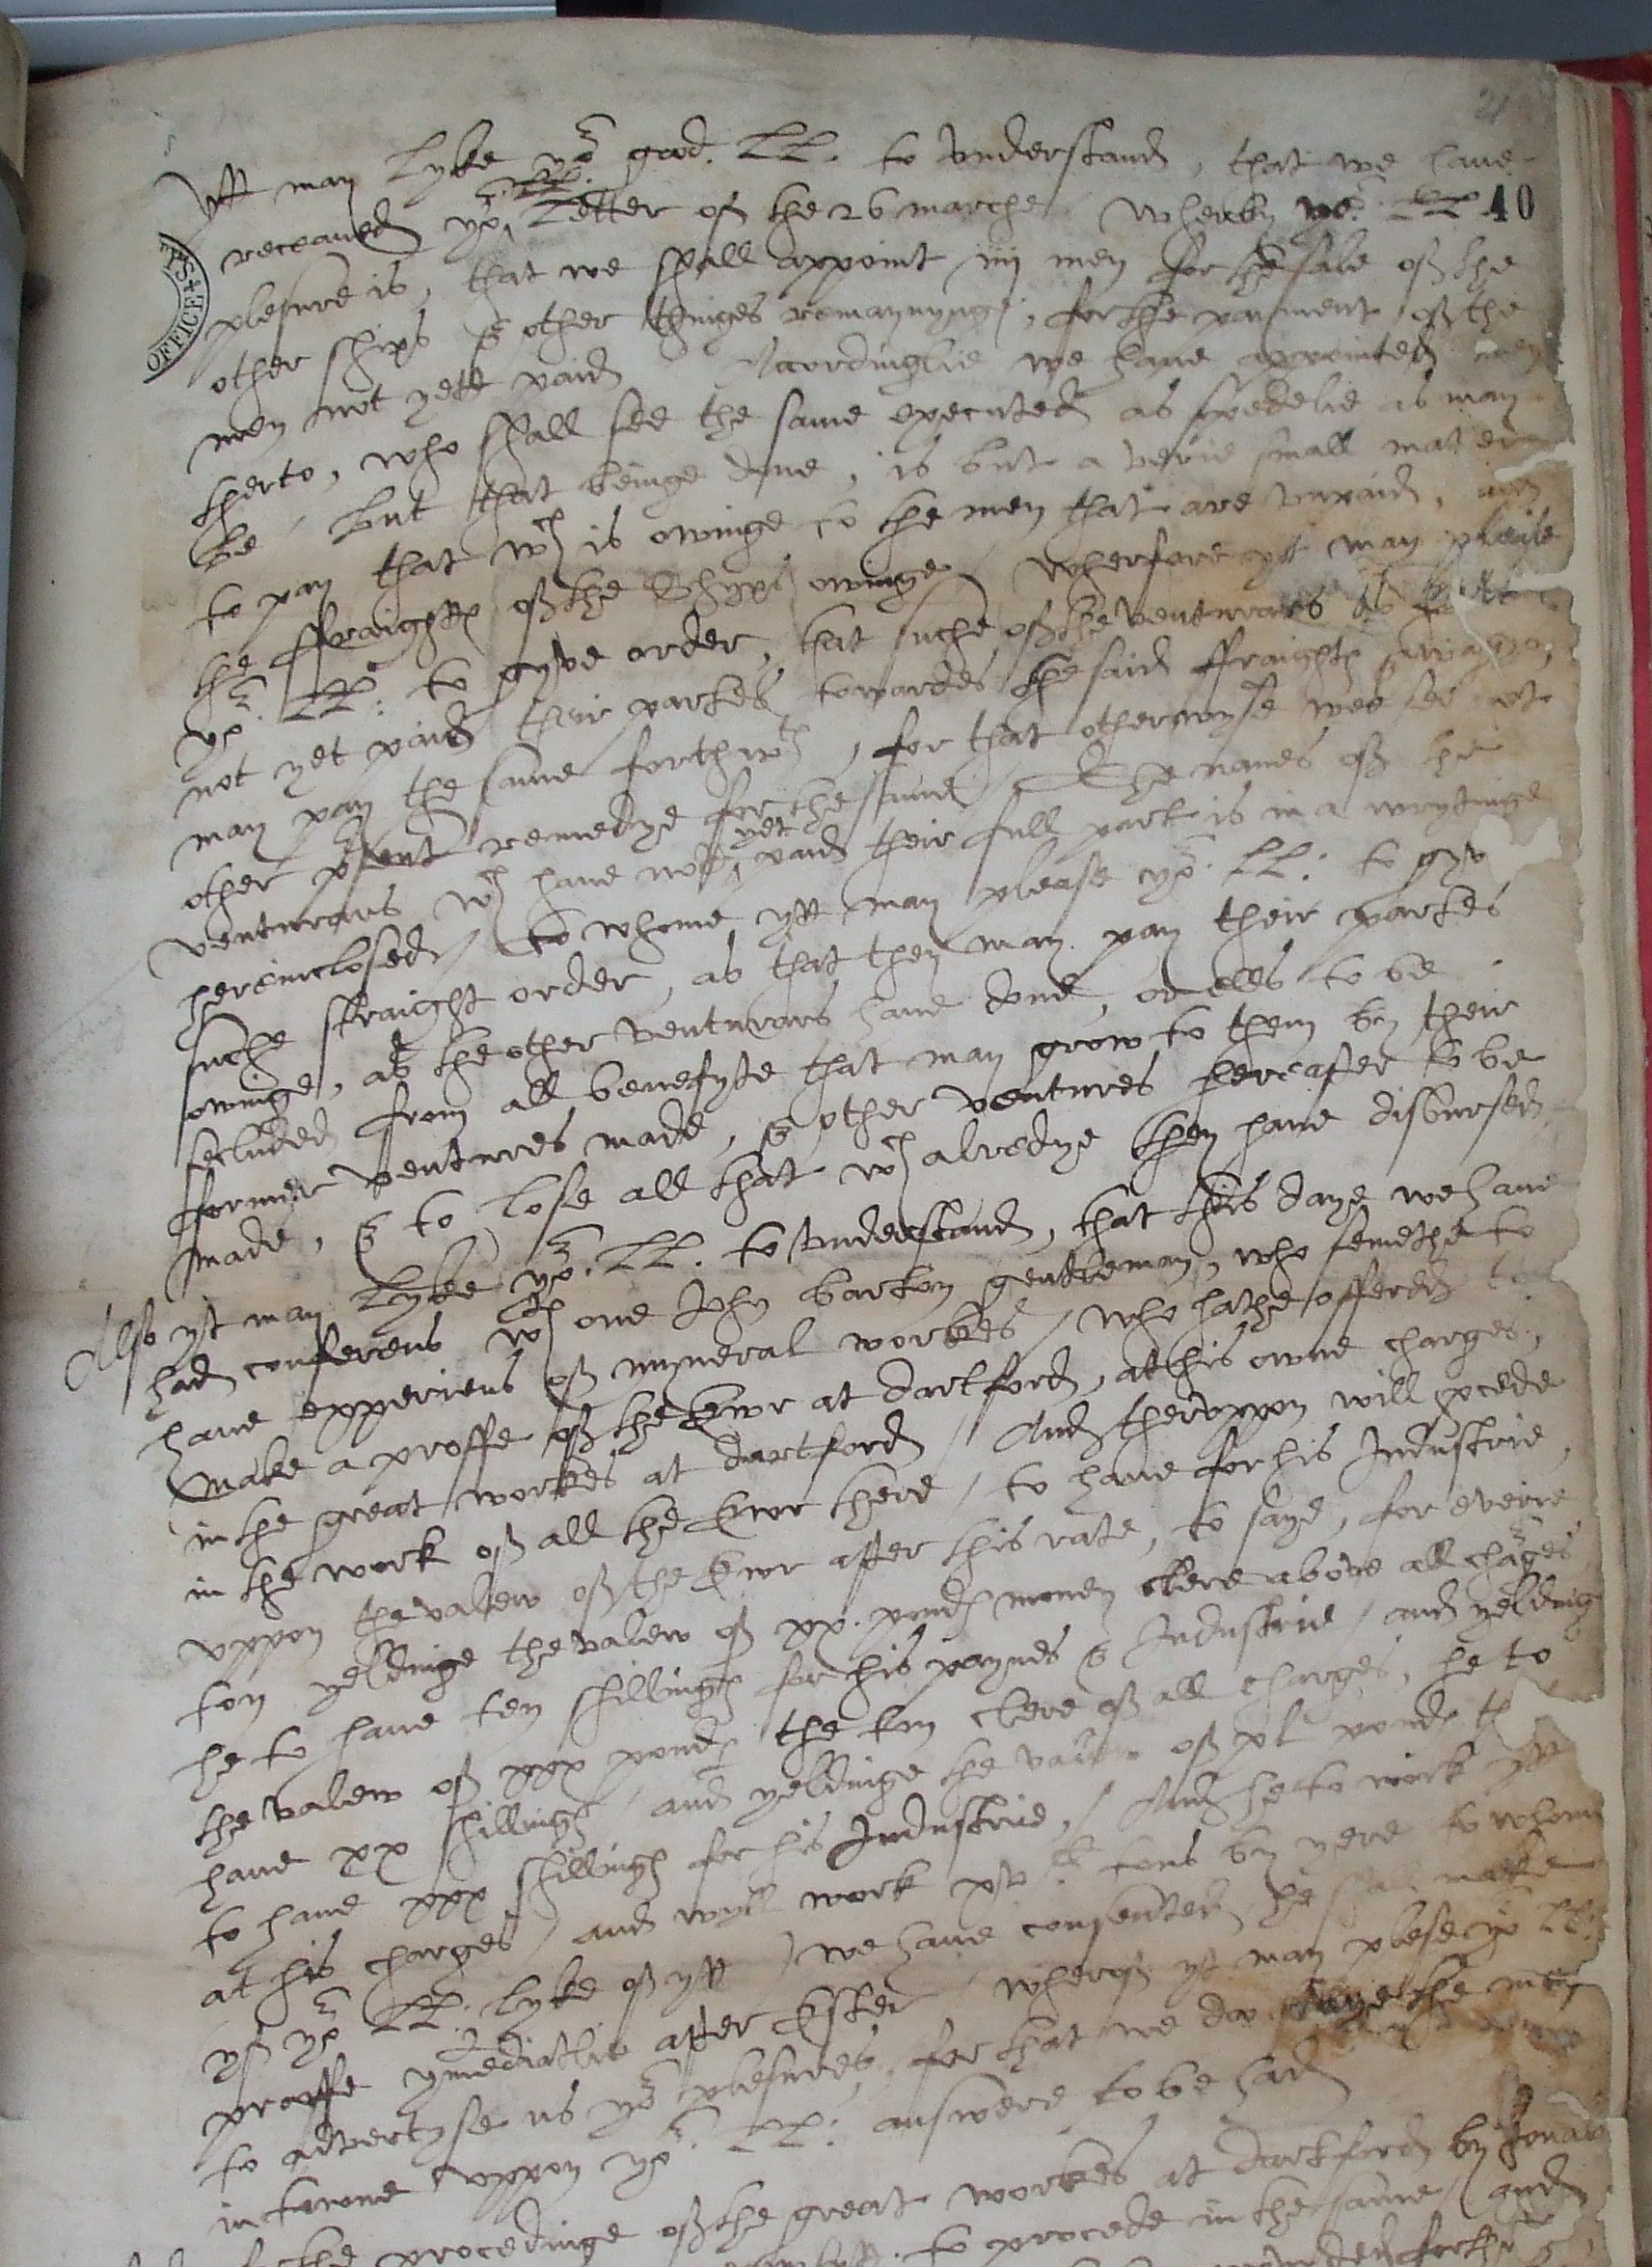 21
40
OFFICE
yt may lyke yor good. LL. to understand, that we have
receaved yor LL. letter of the 26 marche / wherby yor. LL
plesure is, that we shall appoint iiij men for the sale of the
other ships & other thinges remaynynge, for the payment of the
men not yett paid / Accordinglie we have appointed men
therto, who shall see the same executed as spedelie as may
be / but that beinge done, is but a verie small mater
to pay that wch is owinge to the men that are unpaid, and
the ffraights of the Shyps owinge / wherfore yt may please
yor. LL: to gyve order, that suche of the venturars as have
not yet paid their partes towardes the said ffraights &
may pay the same forthwth, for that otherwyse we see not
other present remedye for the same / The names of the
venturars wch have not yet paid their full part is in a wrytinge
hereinclosed / to whome yt may please yor. LL: to gyv
suche straight order, as that they may pay their partes
owinge, as the other venturars have done, or ells to be
secluded from all benefyte that may grow to them by their
former ventures made, & other ventures hereafter to be
made, & to lose all that wch alredye they have disbursed
Also yt may lyke yor. LL. to understand, that this daye we have
had conferens wth one John barton gentleman, who semethe to
have experiens of myneral workes / who hathe offered to
make a proffe of the Ewr at dartford, at his owne charges,
in the great workes at dartford / And theruppon will procede
in the work of all the Ewr there / to have for his Industrie,
uppon the valew of the Ewr after this rate, to saye, for everie
ton yeldinge the valew of xx. pouds money clere above all charges
he to have ten shillings for his paynes & Industrie / and yelding
the valew of xxx pouds the ton clere of all charges, he to
have xx shillings / and yeldinge the valew of xl pouds th
to have xxx shillings for his Industrie, / And he to work yt
at his charges / and wyll work xvc. tons by yere to whom
yf yor LL: lyke of yt / we have consented he shall make
proffe ymediatlie after Ester / wherof yt may plese yor LL:
to advertyse us yor plesures, for that we do the
in towne uppon yor. LL: answere to be had
procedinge of the great workes at dartford by Jonas
to procede in the same / and